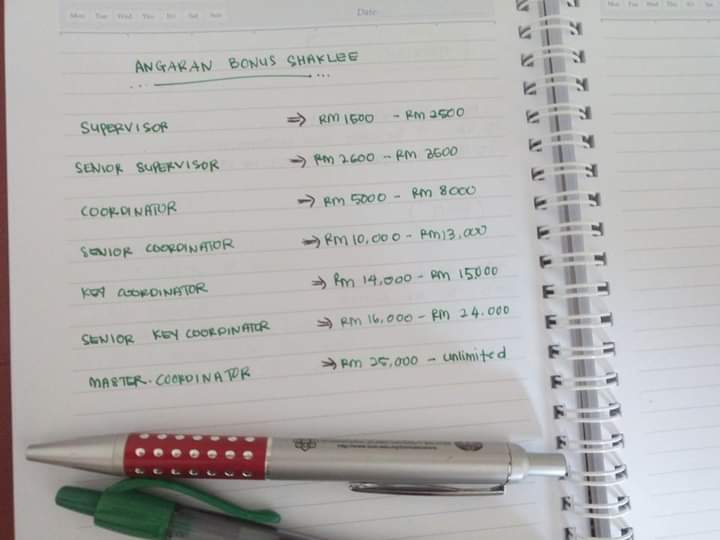 Mon Tue Wed Thu Fri Sat Sun
Date
Mon Tue Wed Thu Fri
ANGARAN BONUS SHAKLEE
SUPERVISOR ⇒ RM 1500 - RM 2500
SENIOR SUPERVISOR ⇒ RM 2600 - RM 3500
COORDINATOR ⇒ RM 5000 - RM 8000
SENIOR COORDINATOR ⇒ RM 10,000 - RM 13,000
KEY COORDINATOR ⇒ RM 14,000 - RM 15,000
SENIOR KEY COORDINATOR ⇒ RM 16,000 - RM 24.000
MASTER.COORDINATOR ⇒ RM 25,000 - unlimited